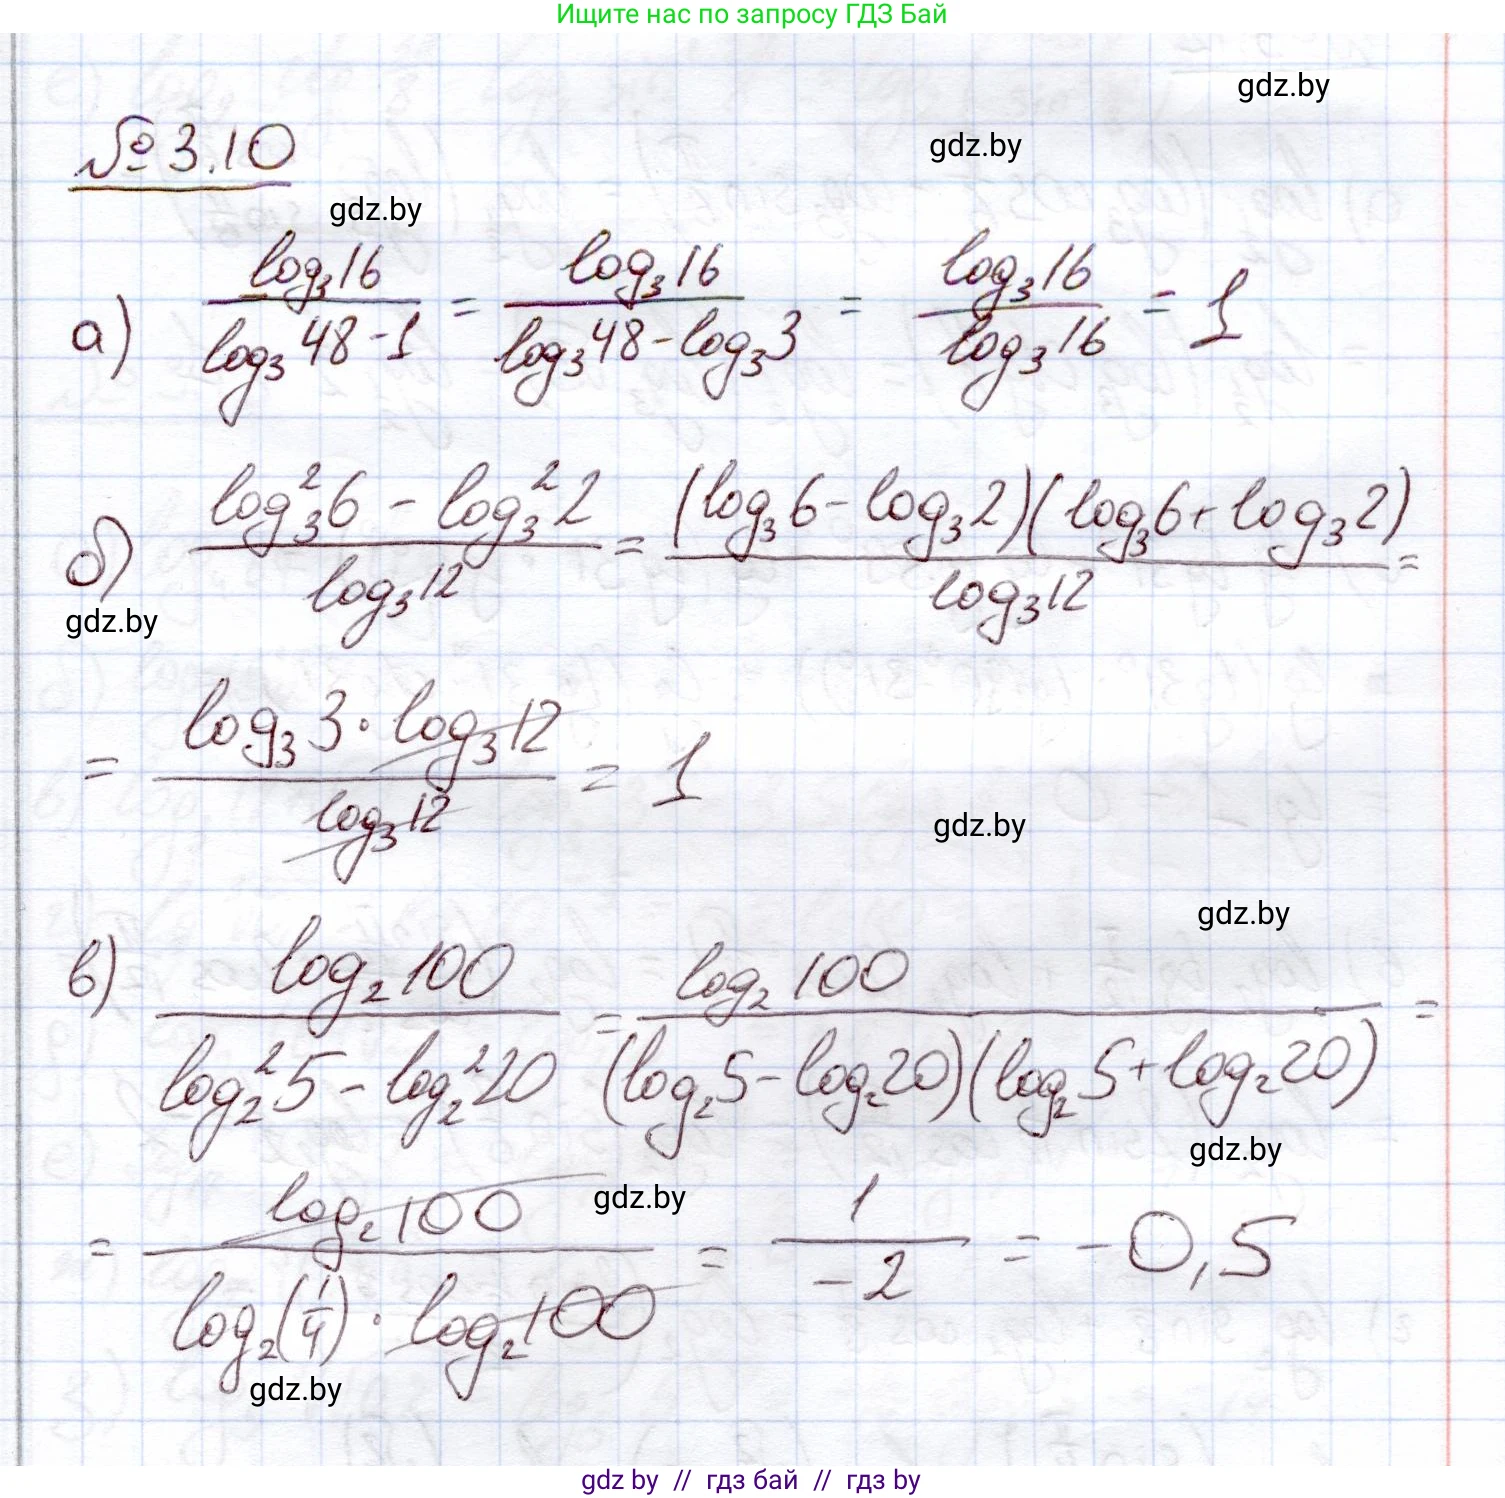 Ищите нас по запросу ГДЗ Бай
gdz.by
№ 3.10
gdz.by
gdz.by
а) log₃16 / (log₃48 - 1) = log₃16 / (log₃48 - log₃3) = log₃16 / log₃16 = 1
б) (log₃²6 - log₃²2) / log₃12 = (log₃6 - log₃2)(log₃6 + log₃2) / log₃12 =
gdz.by
= log₃3 · log₃12 / log₃12 = 1
gdz.by
gdz.by
в) log₂100 / (log₂²5 - log₂²20) = log₂100 / (log₂5 - log₂20)(log₂5 + log₂20) =
gdz.by
gdz.by
= log₂100 / log₂(1/4) · log₂100 = 1 / -2 = -0,5
gdz.by
gdz by // гдз бай // гдз by